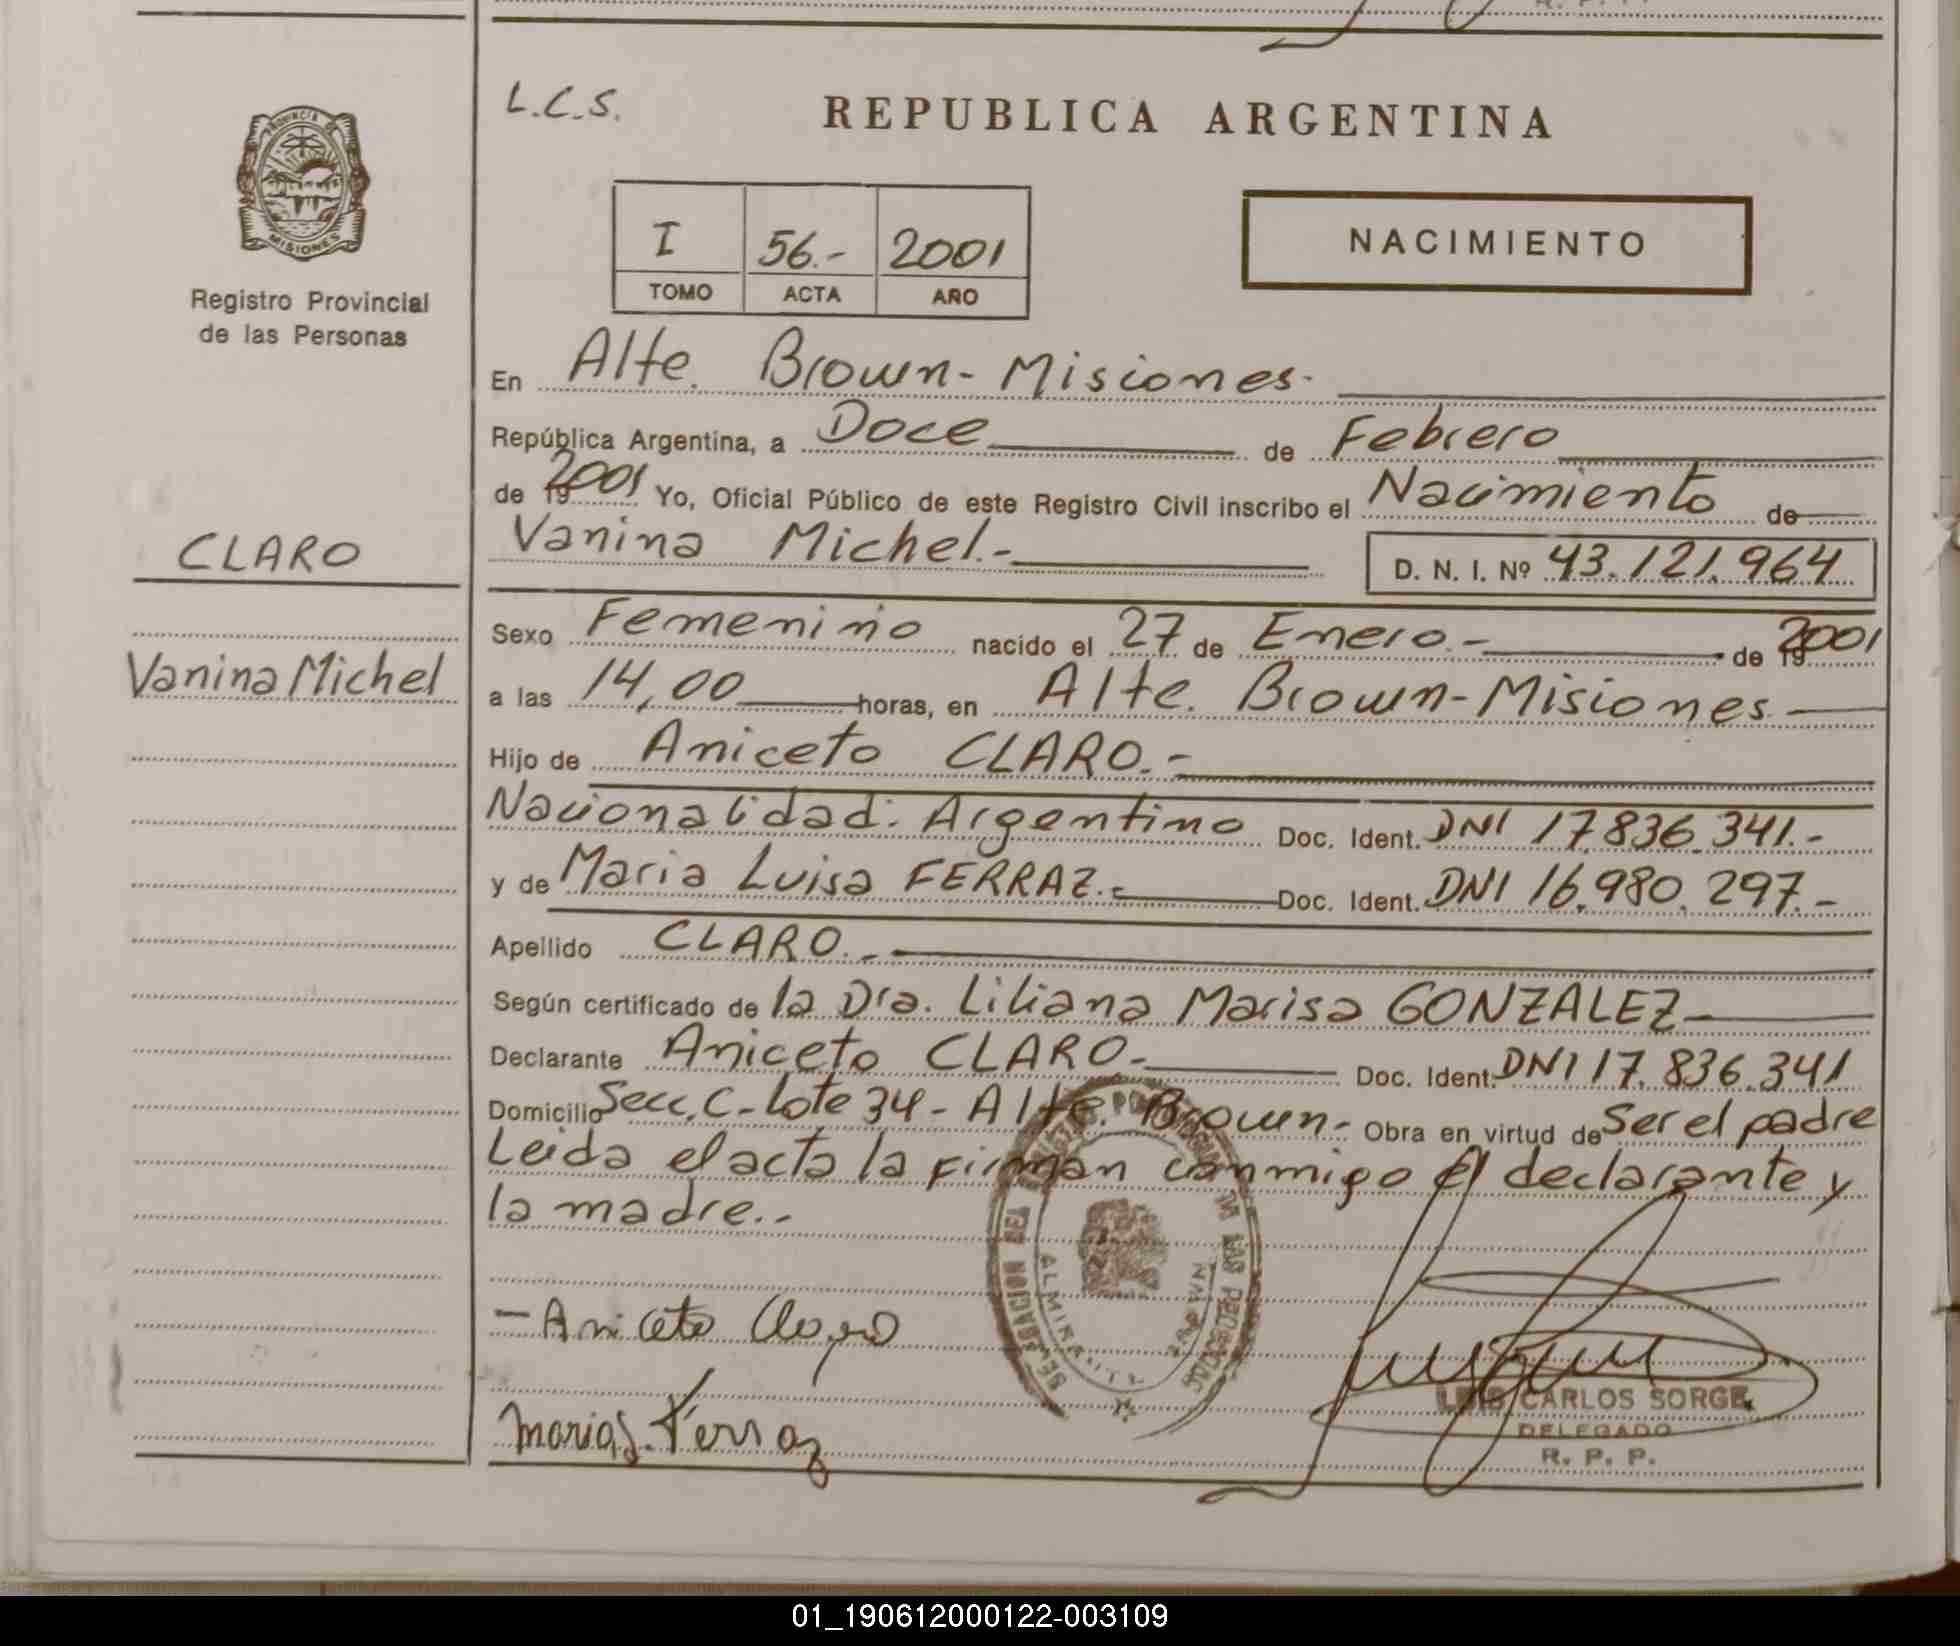 L.C.S.
REPUBLICA ARGENTINA
PROVINCIA DE
MISIONES
Registro Provincial
de las Personas
I 56.- 2001
TOMO ACTA AÑO
NACIMIENTO
En Alte. Brown-Misiones.
República Argentina, a Doce de Febrero
de 2001 Yo, Oficial Público de este Registro Civil inscribo el Nacimiento de
Vanina Michel.- D. N. I. Nº 43.121.964
CLARO
Vanina Michel
Sexo Femenino nacido el 27 de Enero.- de 2001
a las 14,00 horas, en Alte. Brown-Misiones
Hijo de Aniceto CLARO.-
Nacionalidad: Argentino Doc. Ident. DNI 17.836.341.-
y de Maria Luisa FERRAZ.- Doc. Ident. DNI 16.980.297.-
Apellido CLARO.-
Según certificado de la Dra. Liliana Marisa GONZALEZ
Declarante Aniceto CLARO- Doc. Ident. DNI 17.836.341
Domicilio Secc. C-Lote 34-Alte. Brown- Obra en virtud de Ser el padre
Leida el acta la firman conmigo el declarante y
la madre.-
DELEGACION DEL REGISTRO PROVINCIAL DE LAS PERSONAS
ALMIRANTE BROWN
-Aniceto Claro
Maria L. Ferraz
LUIS CARLOS SORGE
DELEGADO
R. P. P.
01_190612000122-003109